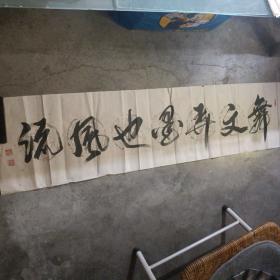 舞文弄墨也風流